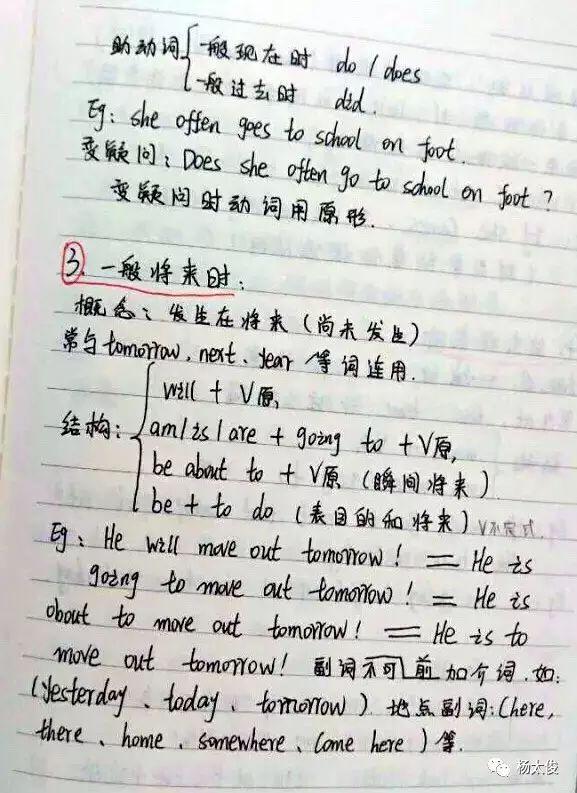 助动词 一般现在时 do / does
一般过去时 did.
Eg: she offen goes to school on foot.
变疑问: Does she often go to school on foot ?
变疑问时动词用原形.
3. 一般将来时:
概念: 发生在将来 (尚未发生)
常与tomorrow、next、year 等词连用.
will + V原,
结构: am/is/are + going to + V原,
be about to + V原 (瞬间将来)
be + to do (表目的和将来) V不定式.
Eg: He will move out tomorrow! = He is
going to move out tomorrow! = He is
obout to move out tomorrow! = He is to
move out tomorrow! 副词不可前加介词. 如:
(yesterday、today、tomorrow) 地点副词: (here,
there、home、somewhere、come here) 等.
杨太俊